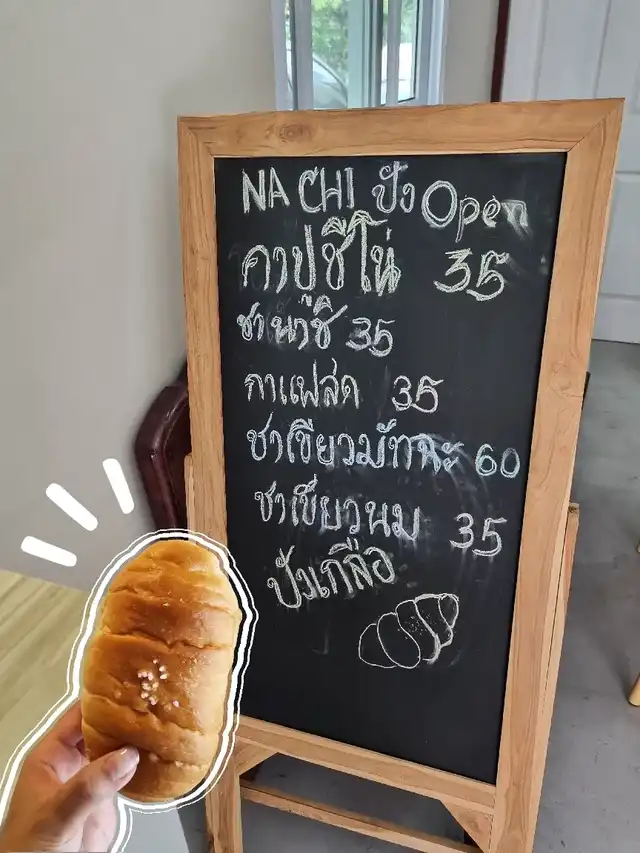 NA CHI ปัง Open
คาปูชิโน่ 35
ชานาชิ 35
กาแฟสด 35
ชาเขียวมัทฉะ 60
ชาเขียวนม 35
ปังเกลือ